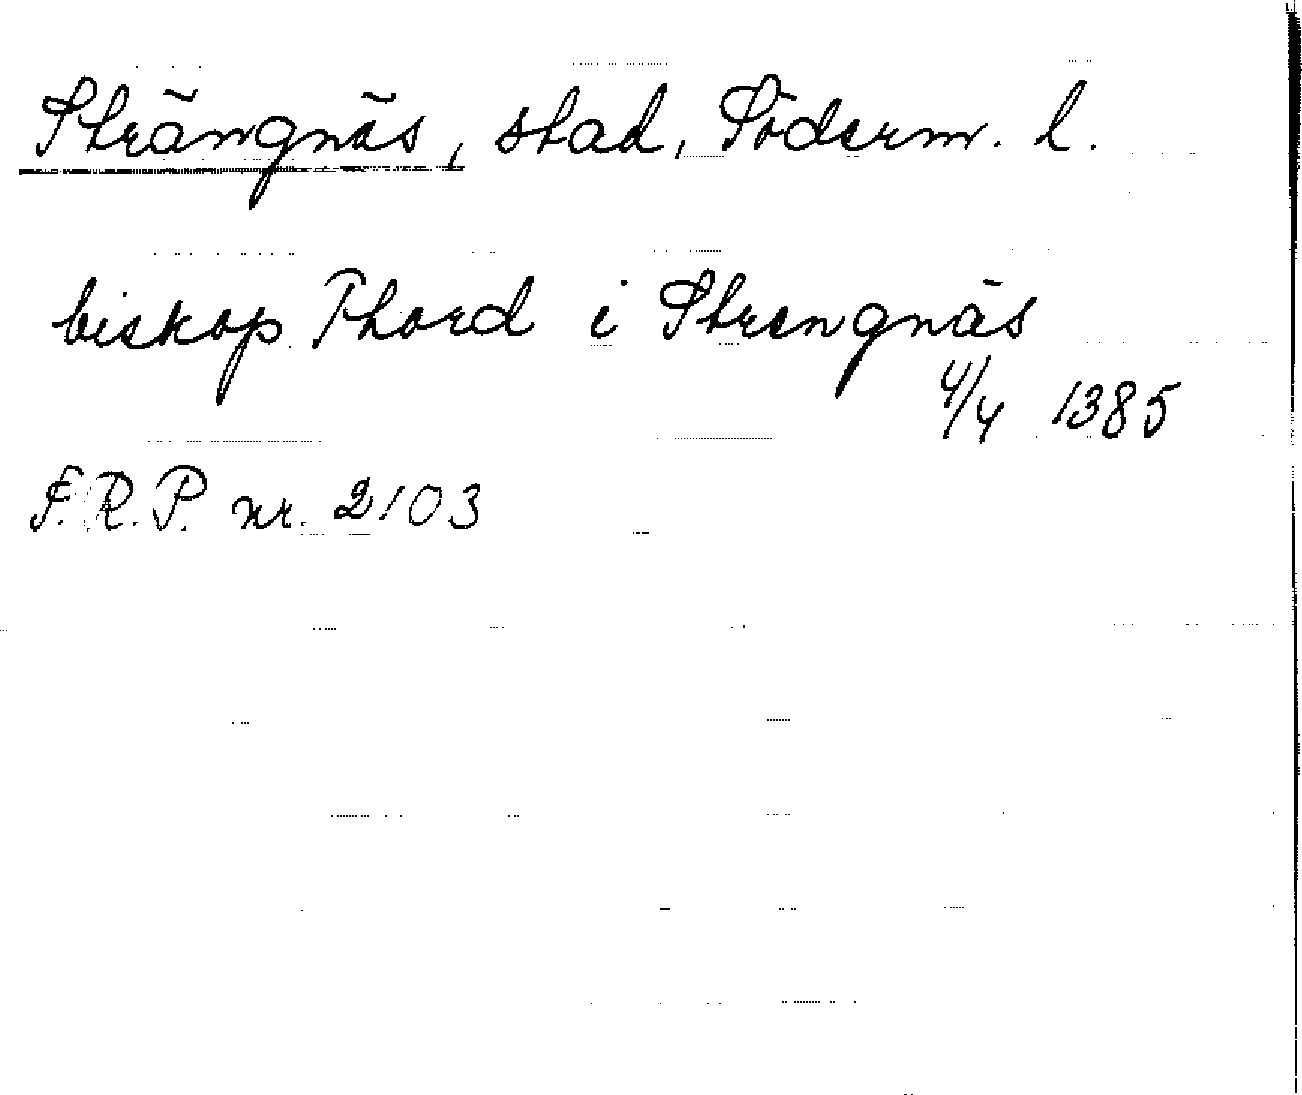 Strängnäs, stad, Söderm. l.
biskop Thord i Strengnäs
4/4 1385
F.R.P. nr. 2103